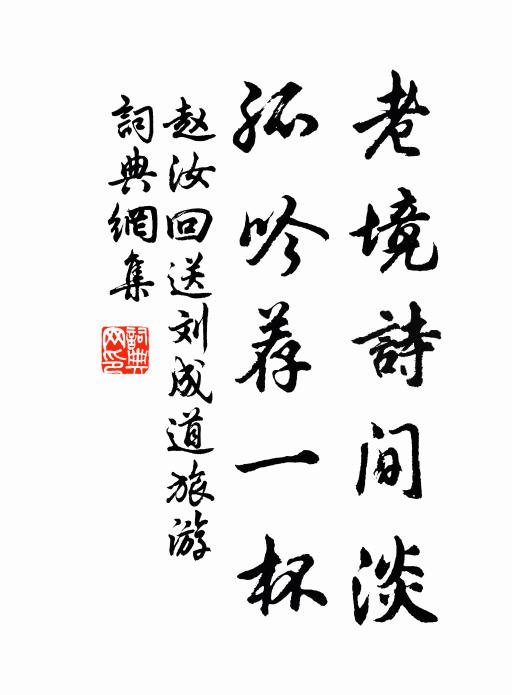 老境詩间淡
孤吟荐一杯
赵汝回送刘成道旅游
詞典網集
詞典网印